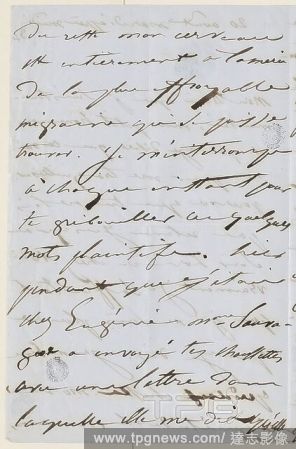 du reste mon cerveau
est entièrement à la merci
de la plus effroyable
migraine qui se puisse
trouver. Je m'interromps
à chaque instant pour
te gribouiller ces quelques
mots plaintifs. hier
pendant que j'étais
chez Eugénie mme
a envoyé tes
avec une lettre dans
laquelle elle me dit qu'elle
www.tpgnews.com/達志影像